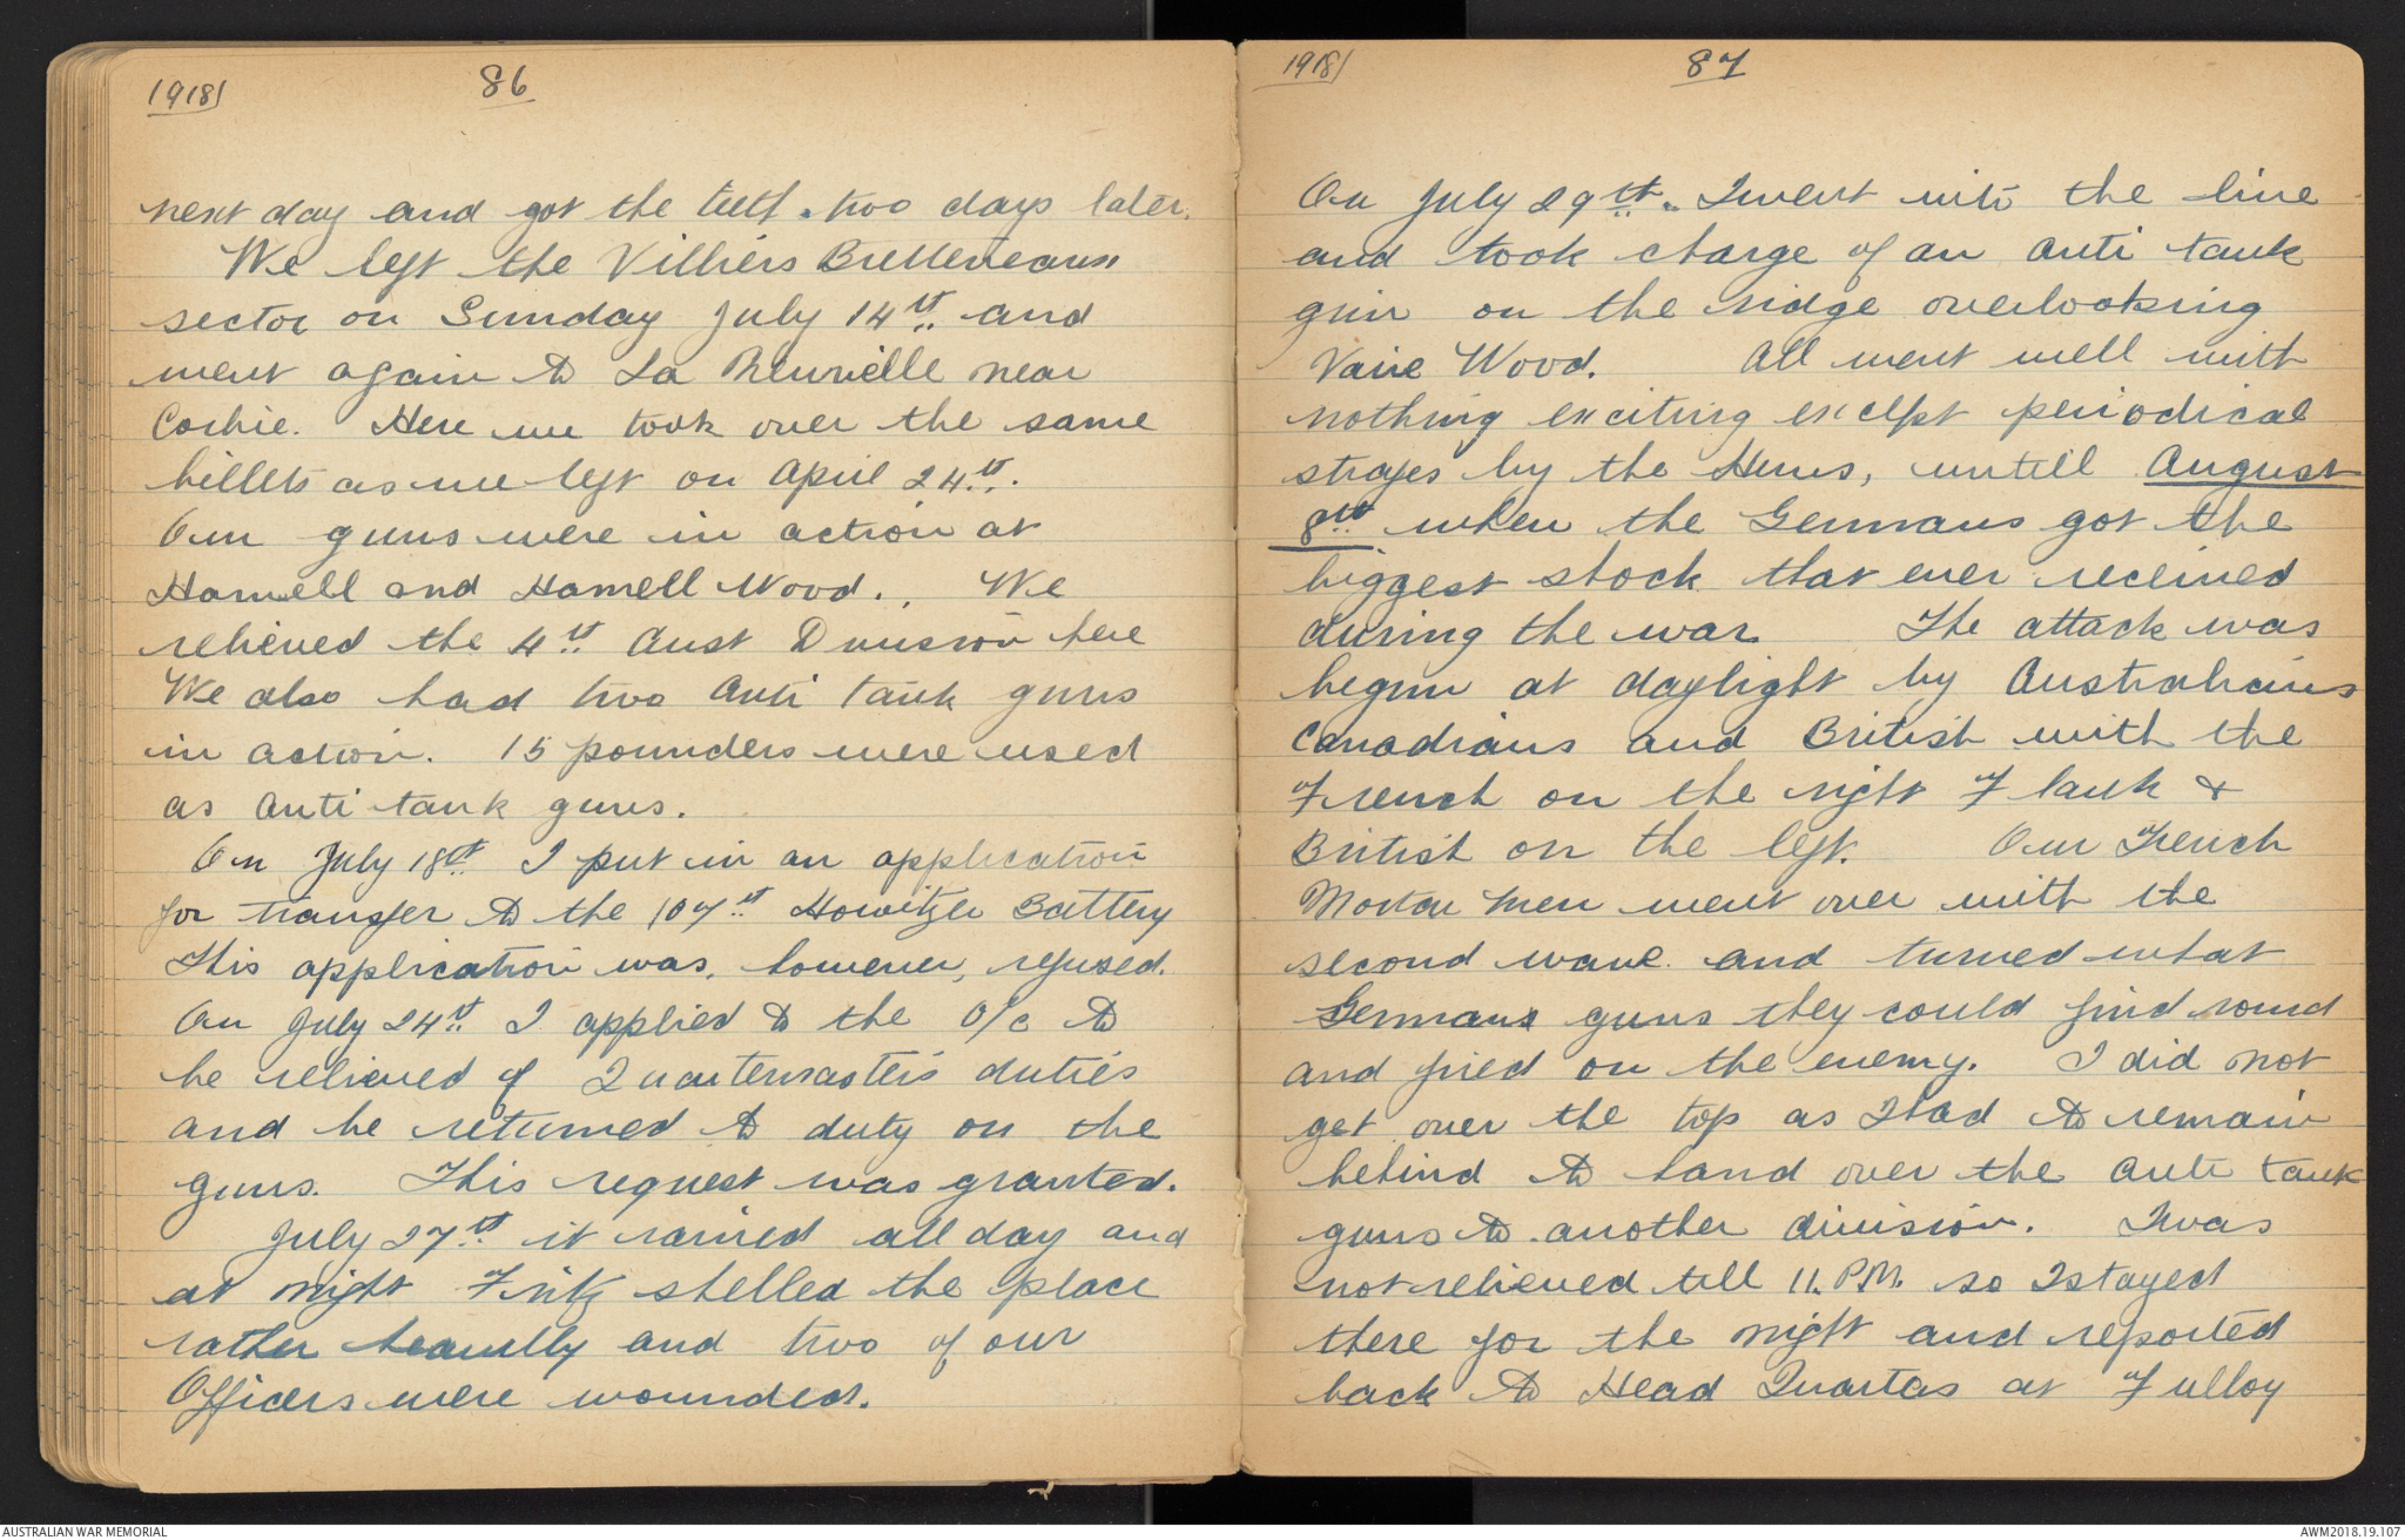 1918/
86
next day and got the teeth two days later.
We left the Villiers Bretteneaux
sector on Sunday July 14th. and
went again to La Neuville near
Corbie. Here we took over the same
billets as we left on April 24th.
Our guns were in action at
Hamell and Hamell Wood. We
relieved the 4th Aust Division here
We also had two Anti Tank guns
in action. 15 pounders were used
as Anti tank guns.
On July 18th I put in an application
for transfer to the 107th Howitzer Battery
This application was, however, refused.
On July 24th I applied to the O/c to
be relieved of Quartermasters duties
and be returned to duty on the
guns. This request was granted.
July 27th it rained all day and
at night Fritz shelled the place
rather heavilly and two of our
Officers were wounded.
1918/
87
On July 29th. I went into the line
and took charge of an Anti tank
gun on the ridge overlooking
Vaire Wood. All went well with
nothing exciting except periodical
strafes by the Huns, untill August
8th when the Germans got the
biggest shock that ever received
during the war The attack was
begun at daylight by Australians
Canadians and British with the
French on the right Flank &
British on the left. Our Trench
Mortar men went over with the
second wave and turned what
Germans guns they could find round
and fired on the enemy. I did not
get over the top as I had to remain
behind to hand over the Anti tank
guns to another division. I was
not relieved till 11. P.M. so I stayed
there for the night and reported
back to Head Quarters at Fulloy
AUSTRALIAN WAR MEMORIAL
AWM2018.19.107